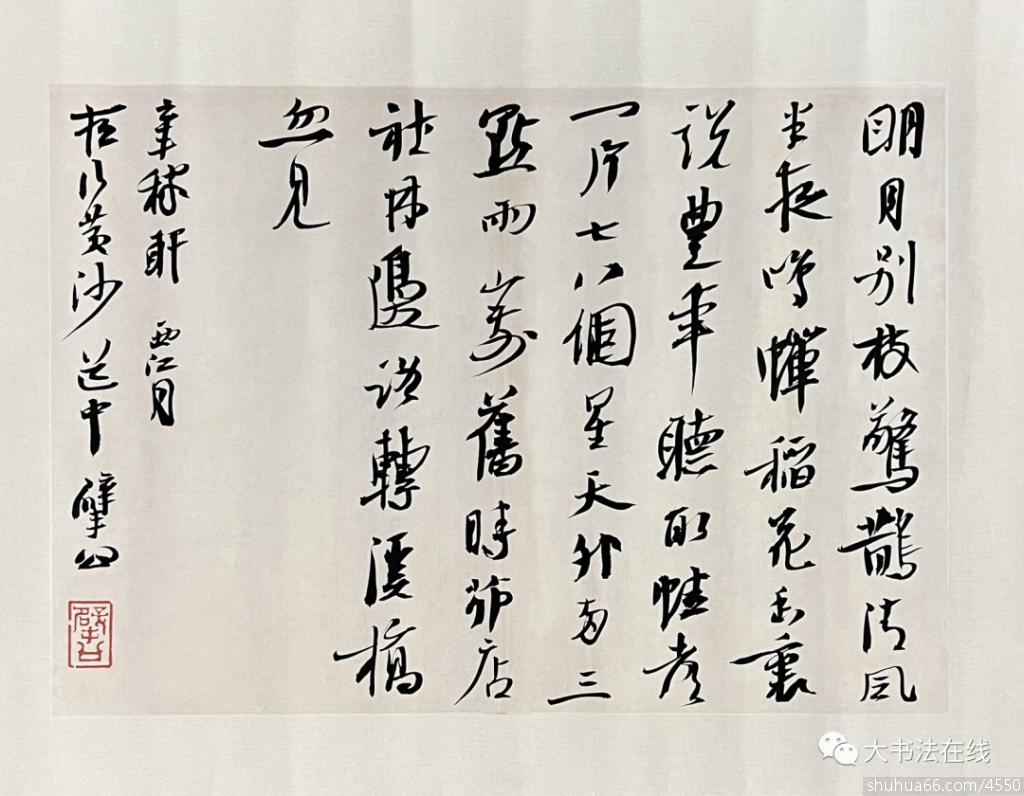 明月别枝驚鵲清風
半夜鳴蟬稻花香裏
説豐年聽取蛙聲
一片七八個星天外兩三
點雨山前舊時茆店
社林邊路轉溪橋
忽見
辛稼軒 西江月
夜行黄沙道中
大书法在线
shuhua66.com/4550